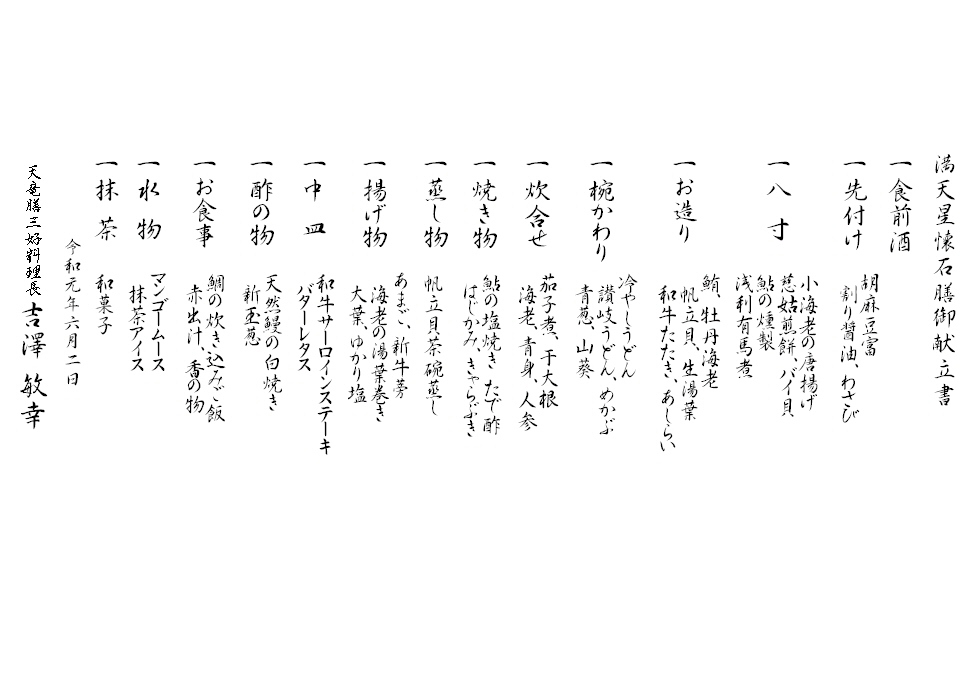 満天星懐石膳御献立書
一 食前酒
一 先付け
胡麻豆富
割り醤油、わさび
一 八寸
小海老の唐揚げ
慈姑煎餅、バイ貝
鮎の燻製
浅利有馬煮
一 お造り
鮪、牡丹海老
帆立貝、生湯葉
和牛たたき、あしらい
一 椀かわり
冷やしうどん
讃岐うどん、めかぶ
青葱、山葵
一 炊合せ
茄子煮、干大根
海老、青身、人参
一 焼き物
鮎の塩焼き たで酢
はじかみ、きゃらぶき
一 蒸し物
帆立貝茶碗蒸し
一 揚げ物
あまご、新牛蒡
海老の湯葉巻き
大葉、ゆかり塩
一 中皿
和牛サーロインステーキ
バターレタス
一 酢の物
天然鰻の白焼き
新玉葱
一 お食事
鯛の炊き込みご飯
赤出汁、香の物
一 水物
マンゴームース
抹茶アイス
一 抹茶
和菓子
令和元年六月二日
天竜膳三好料理長 吉澤 敏幸